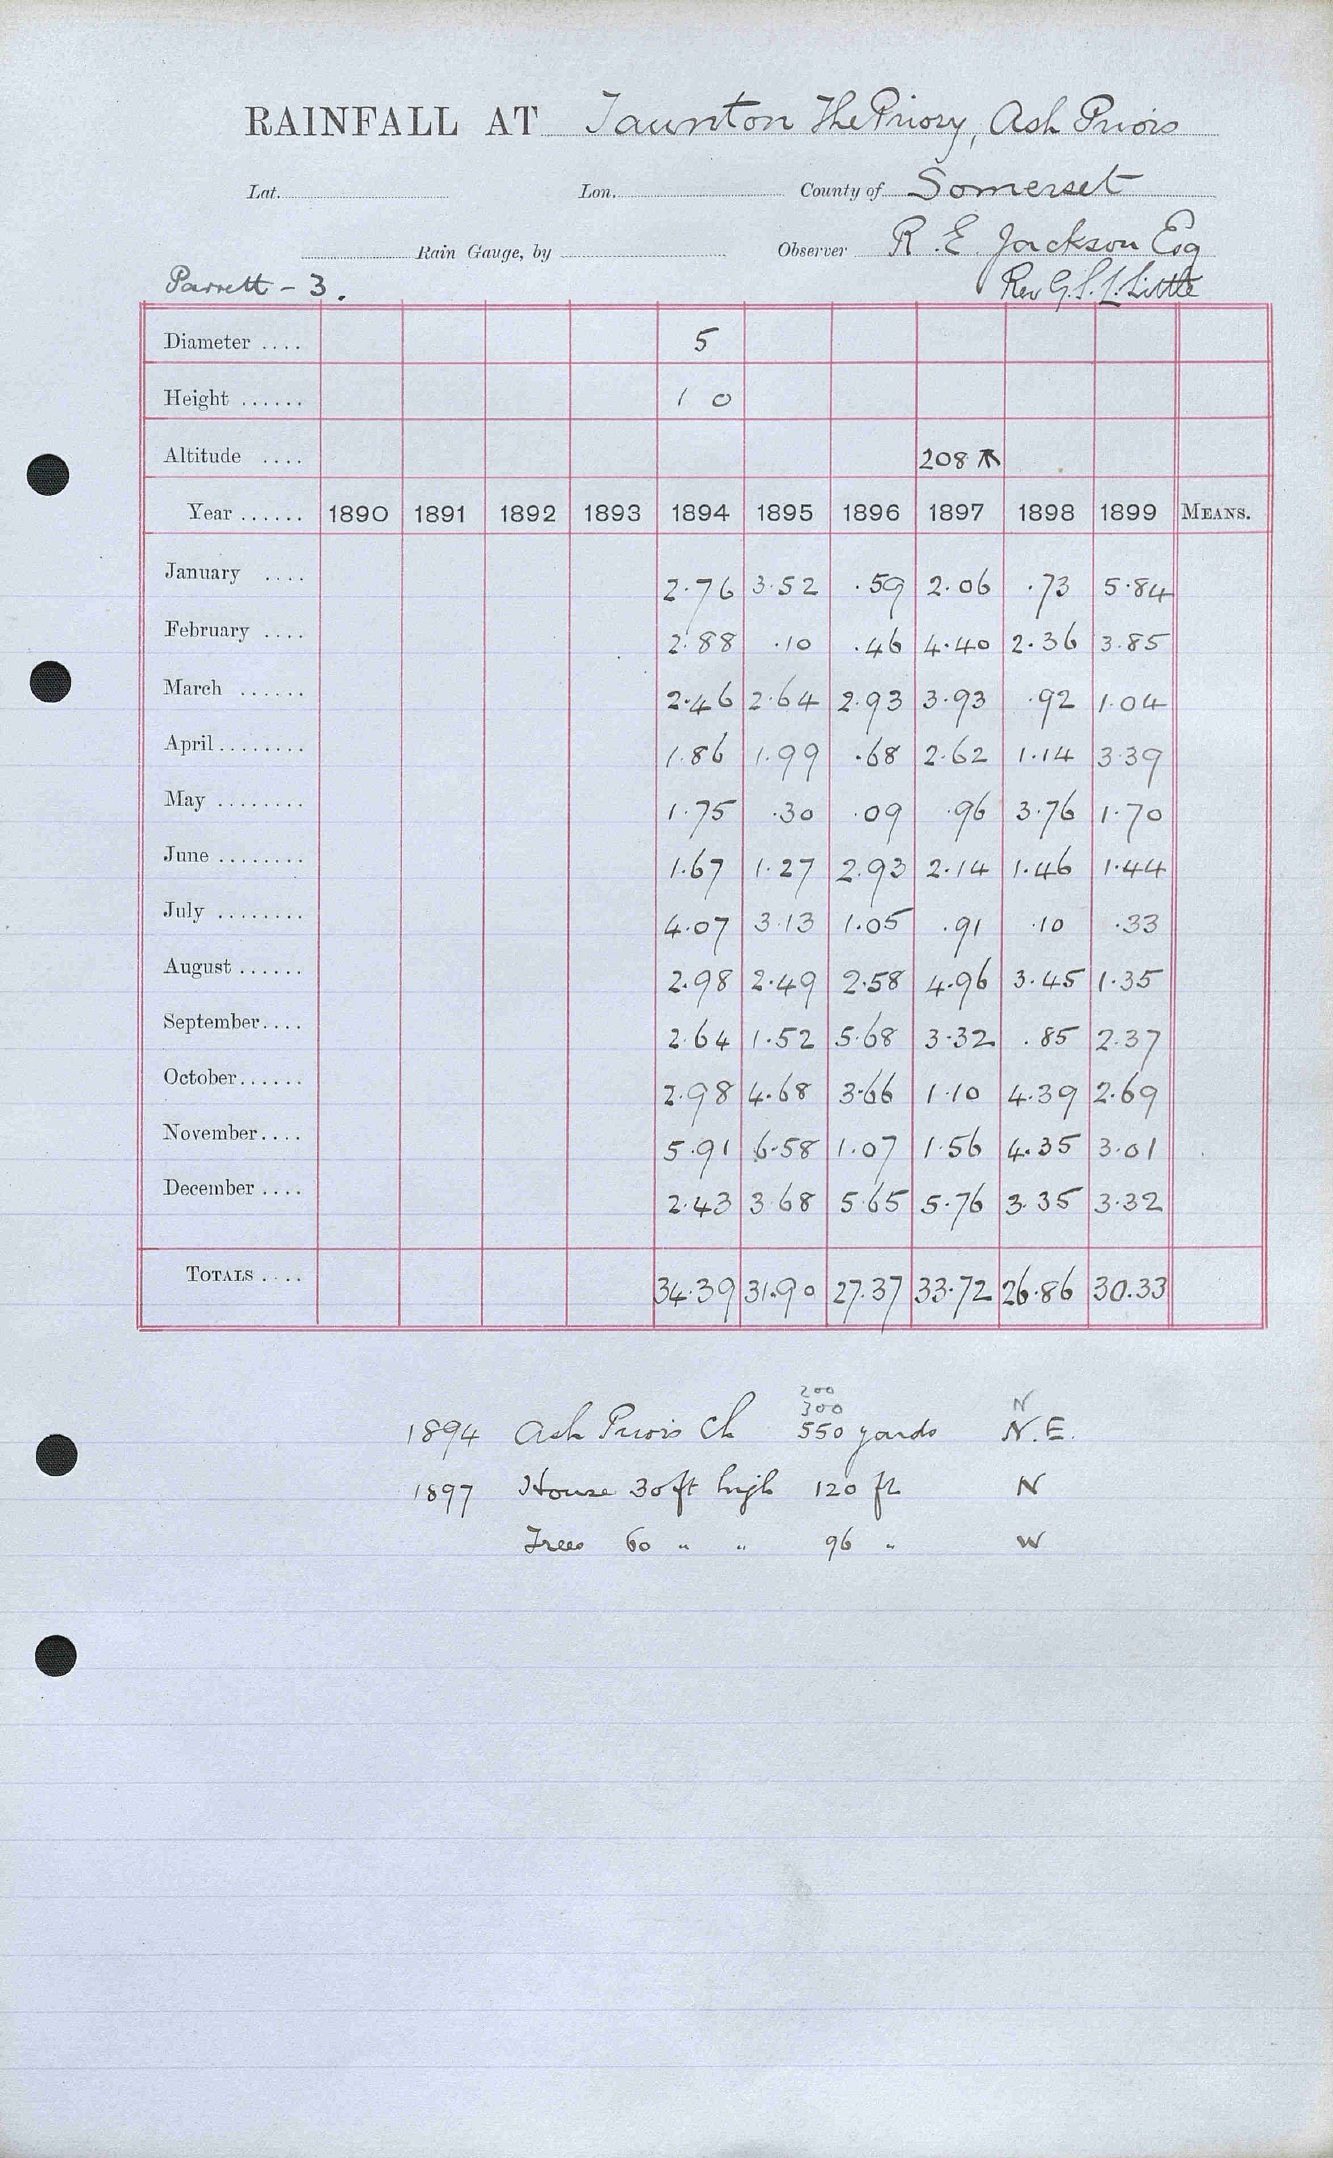 RAINFALL AT Taunton The Priory, Ash Priors
Lat. Lon. County of Somerset
Rain Gauge, by Observer R. E. Jackson Esq
Parrett - 3. Rev G. S. L. Little
Diameter .... 5
Height ...... 1 0
Altitude .... 208
Year ...... 1890 1891 1892 1893 1894 1895 1896 1897 1898 1899 MEANS.
January .... 2.76 3.52 .59 2.06 .73 5.84
February .... 2.88 .10 .46 4.40 2.36 3.85
March ...... 2.46 2.64 2.93 3.93 .92 1.04
April ........ 1.86 1.99 .68 2.62 1.14 3.39
May ........ 1.75 .30 .09 .96 3.76 1.70
June ........ 1.67 1.27 2.93 2.14 1.46 1.44
July ........ 4.07 3.13 1.05 .91 .10 .33
August ...... 2.98 2.49 2.58 4.96 3.45 1.35
September.... 2.64 1.52 5.68 3.32 .85 2.37
October...... 2.98 4.68 3.66 1.10 4.39 2.69
November.... 5.91 6.58 1.07 1.56 4.35 3.01
December .... 2.43 3.68 5.65 5.76 3.35 3.32
TOTALS .... 34.39 31.90 27.37 33.72 26.86 30.33
200
300 N
1894 Ash Priors Ch 550 yards N.E.
1897 House 30ft high 120 ft N
Trees 60 " " 96 " W